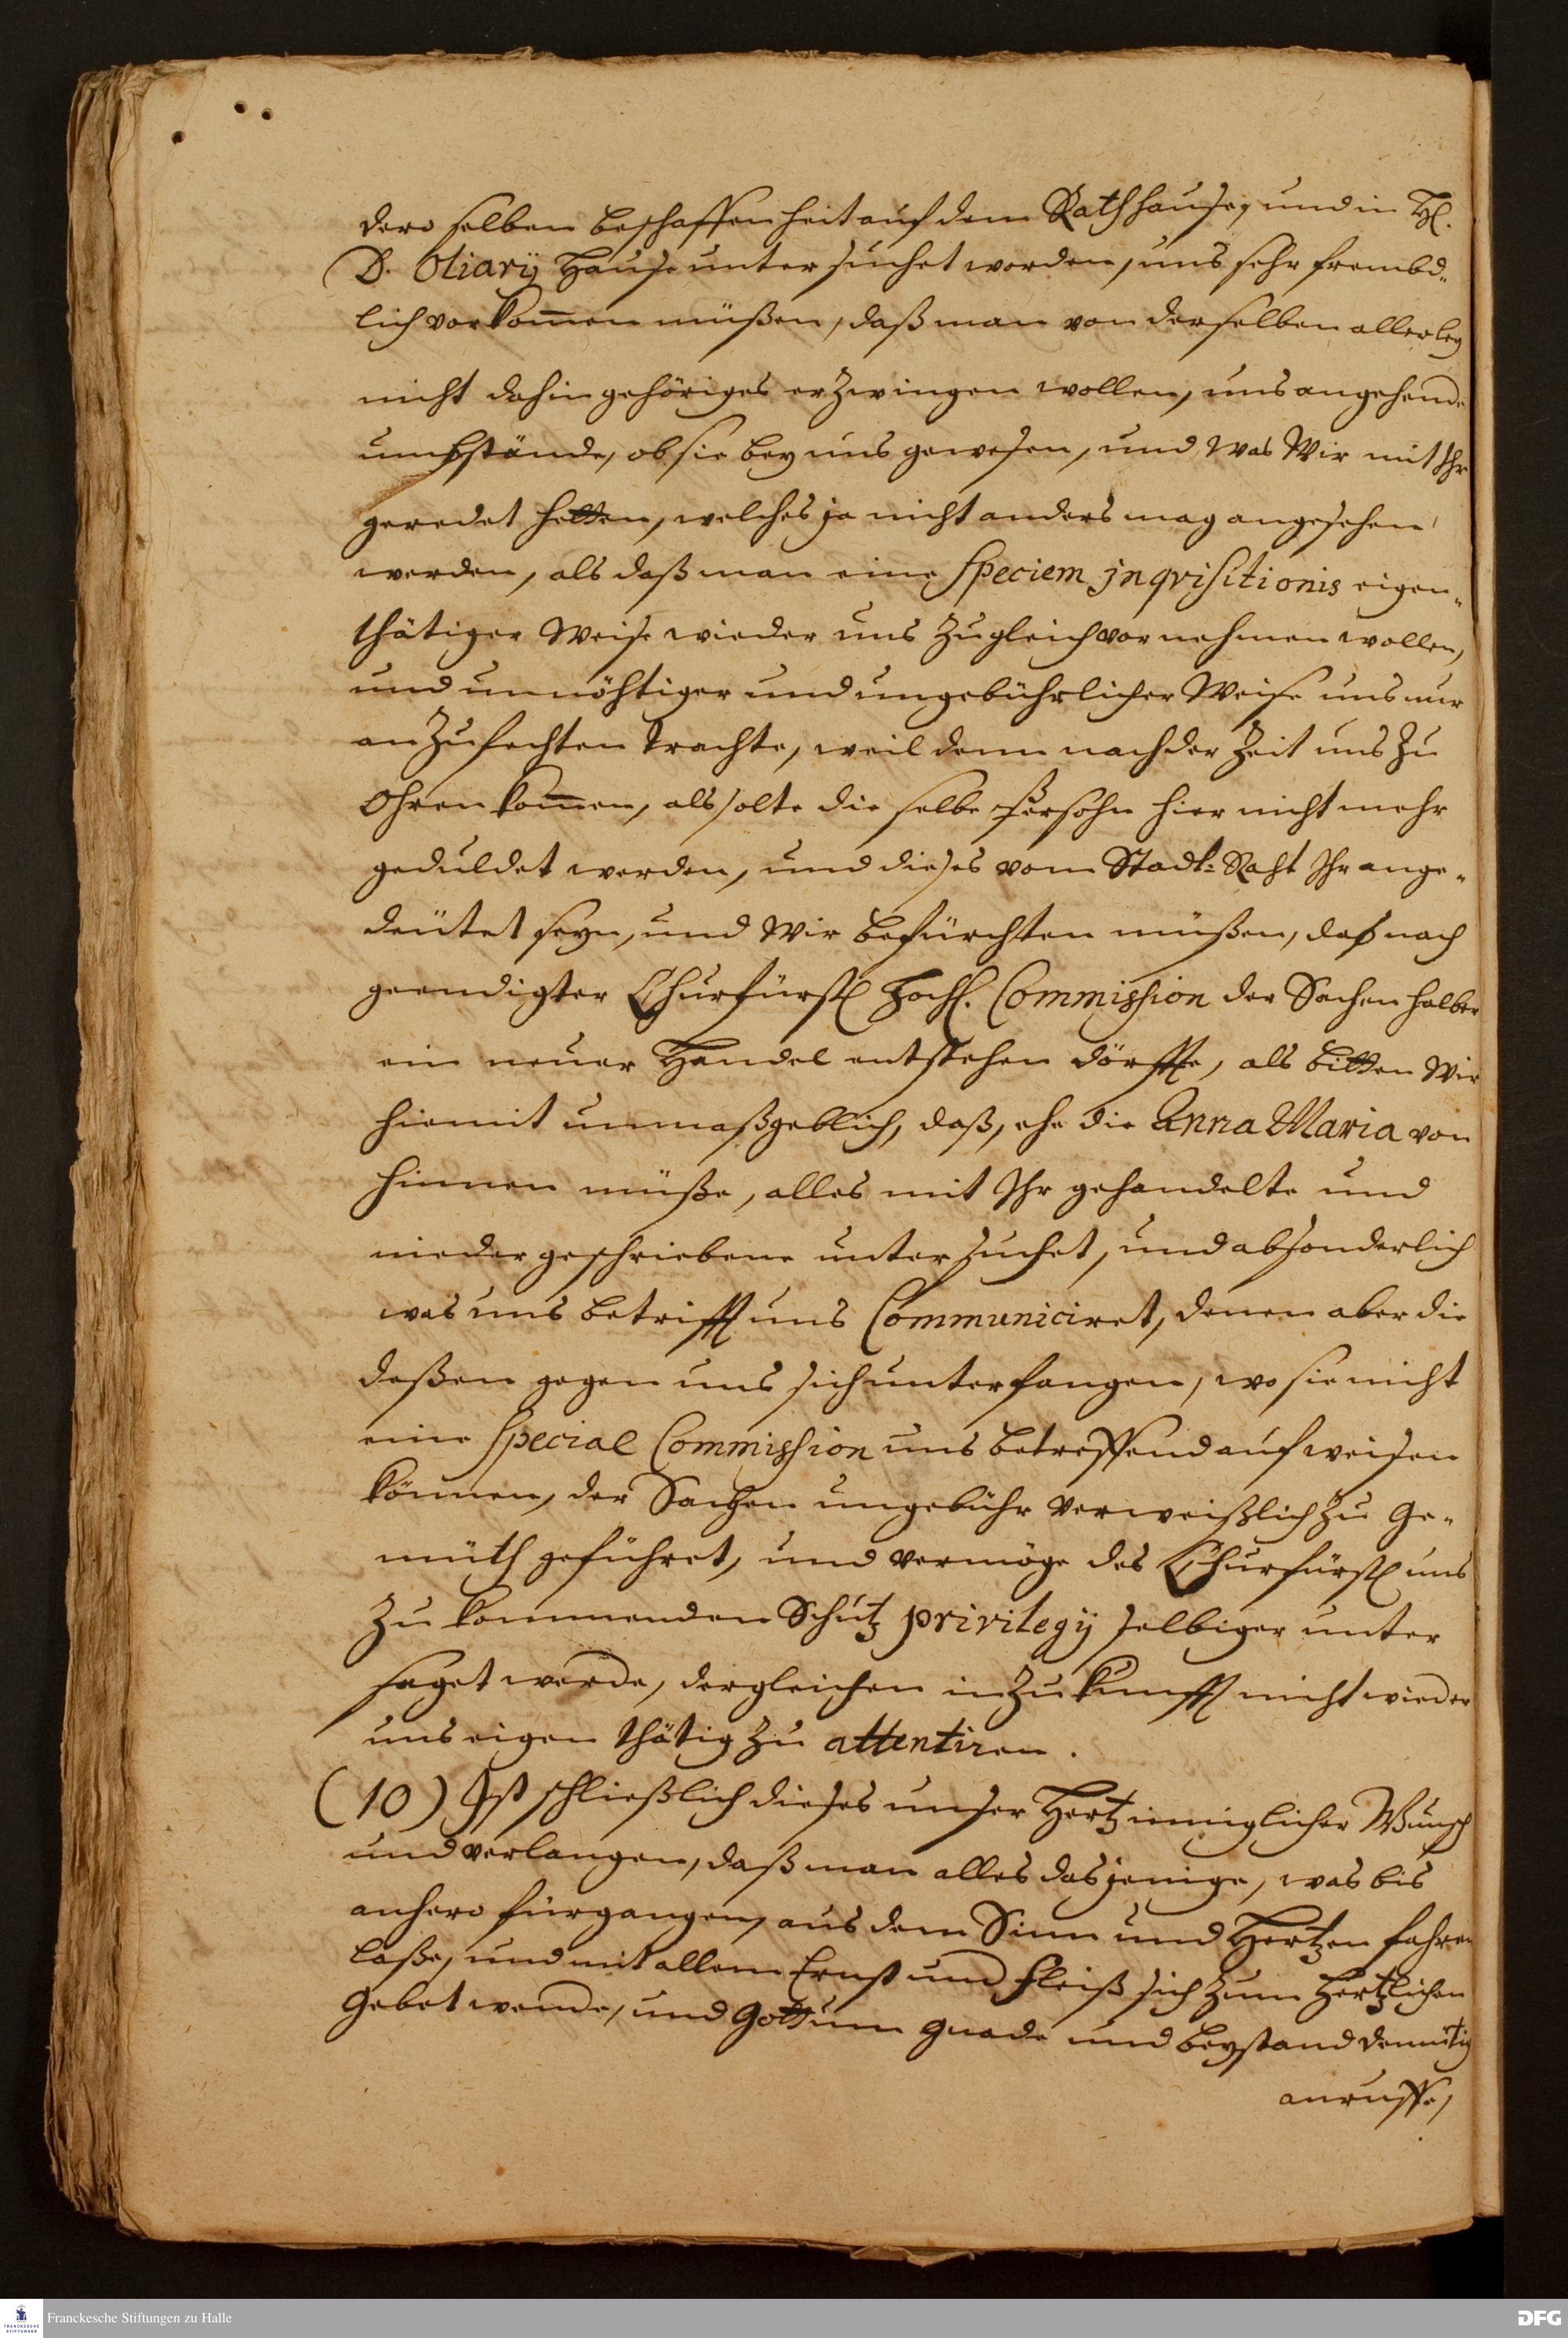 dero selben beschaffenheit auf dem Rathhause, und in H.
D. Oliarÿ Hause untersuchet worden, uns sehr frembd-
lich vorkom̄en müßen, daß man von derselben allerley
nicht dahin gehöriges erzwingen wollen, uns angehende
umbstände, ob sie bey uns gewesen, und was Wir mit Ihr
geredet hetten, welches ja nicht anders mag angesehen
werden, als daß man eine Speciem jnqvisitionis eigen-
thätiger Weise wieder uns zugleich vornehmen wollen,
und unnöhtiger und ungebührlicher Weise uns nur
anzufechten trachte, weil denn nach der Zeit uns zu
Ohren kom̄en, als solte die selbe Persohn hier nicht mehr
geduldet werden, und dieses vom Stadt-Raht Ihr ange-
deütet seyn, und Wir befürchten müßen, daß nach
geendigter Churfürstl Hochl. Commission der Sachen halber
ein neuer Handel entstehen dörffte, als bitten Wir
hiemit unmaßgeblich, daß, ehe die Anna Maria von
hinnen müße, alles mit Ihr gehandelte und
niedergeschriebene untersuchet, und absonderlich
was uns betrifft uns Communiciret, denen aber die
deßen gegen uns sich unterfangen, wo sie nicht
eine Special Commission uns betreffend aufweisen
können, der Sachen ungebühr verweißlich zu Ge-
müth geführet, und vermöge des Churfürstl uns
zukommenden Schutz privilegÿ selbiger unter
saget werde, dergleichen in Zukunfft nicht wieder
uns eigenthätig zu attentiren.
(10) Ist schließlich dieses unser Hertzinniglicher Wunsch
und verlangen, daß man alles dasjenige, was bis
anhero fürgangen, aus dem Sinn und Hertzen fahren
laße, und mit allem Ernst und fleiß sich zum Hertzlichen
Gebet wende, und Gott um Gnade und beystand demütig
anruffe,
Franckesche Stiftungen zu Halle
DFG